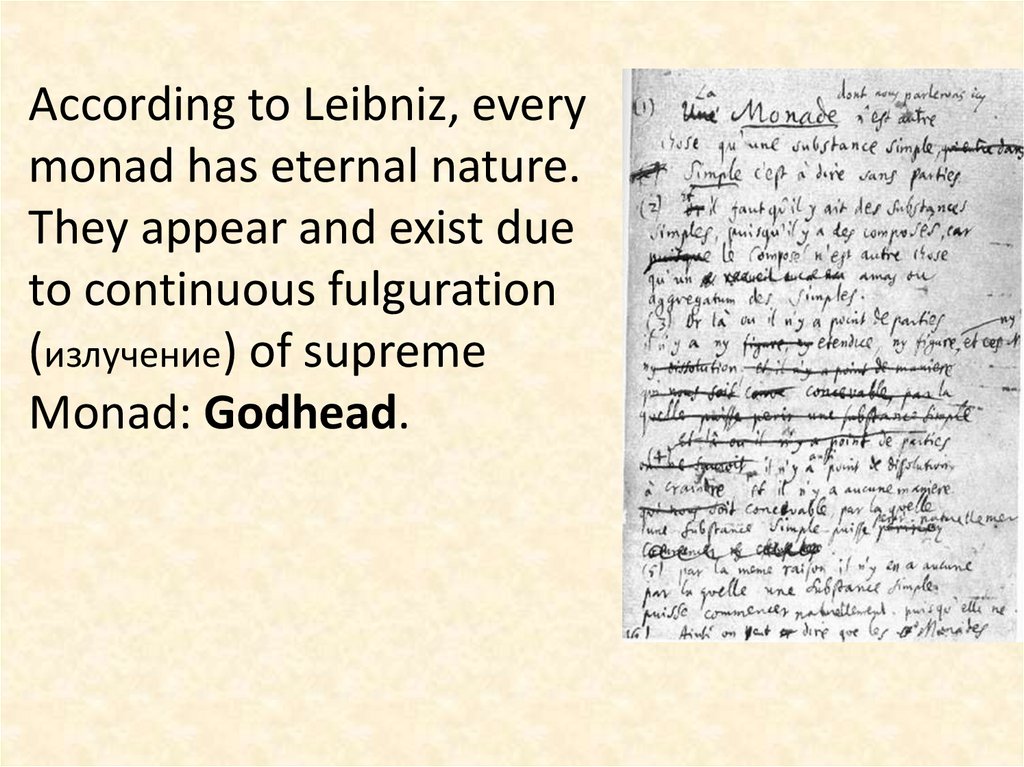 According to Leibniz, every
monad has eternal nature.
They appear and exist due
to continuous fulguration
(излучение) of supreme
Monad: Godhead.
La dont nous parlerons icy
(1) Une Monade n'est autre
chose qu'une substance simple, qui entre dans
Simple c'est à dire sans parties
(2) il faut qu'il y ait des substances
simples, puisqu'il y a des composés, car
puisque le composé n'est autre chose
qu'un amas ou
aggregatum des simples.
(3) Or là ou il n'y a point de parties
il n'y a ny figure ny etendue, ny figure, et
ny dissolution et il n'y a point de maniere
qui nous soit conçevable, par la
quelle puisse perir une substance simple
et là ou il n'y a point de parties
(4) il n'y a aussi point de dissolution
à craindre et il n'y a aucune maniere
qui nous soit concevable, par la quelle
une substance simple puisse perir naturellement
(5) par la meme raison il n'y en a aucune
par la quelle une substance simple
puisse commencer naturellement, puisqu'elle ne
(6) Ainsi on peut dire que les Monades